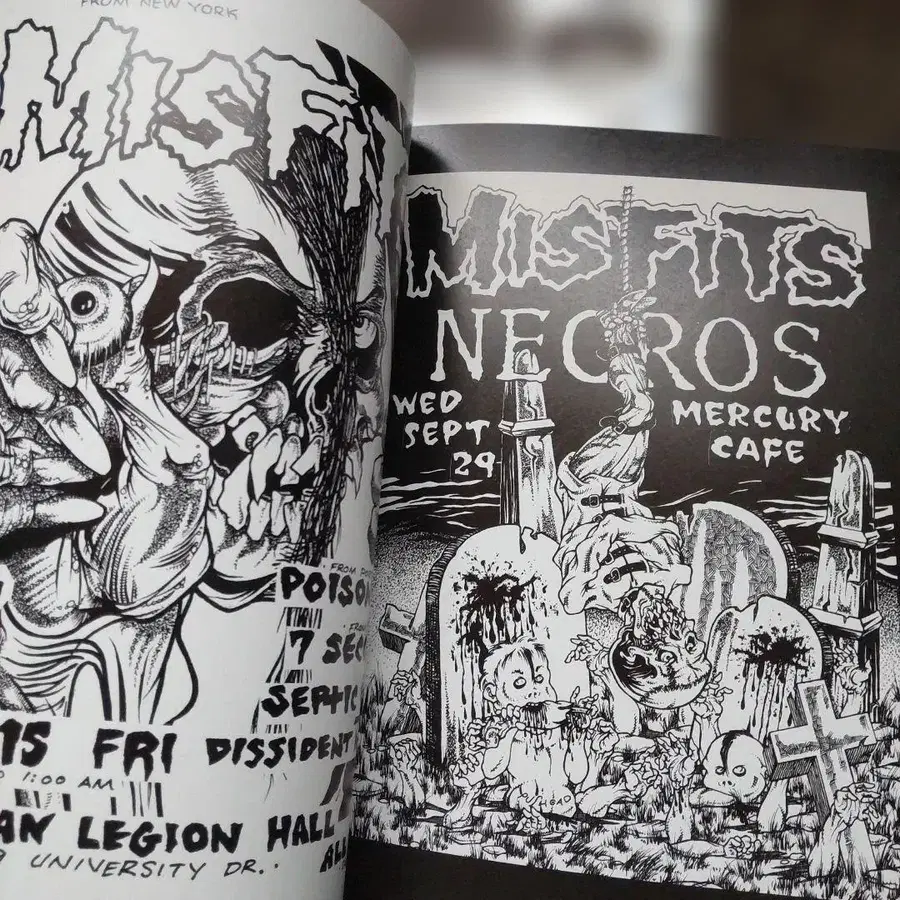 FROM NEW YORK
MISFIT
POISO
7 SEC
SEPTIC
15 FRI DISSIDENT
1:00 AM
AN LEGION HALL
UNIVERSITY DR.
MISFITS
NECROS
WED
SEPT
29
MERCURY
CAFE